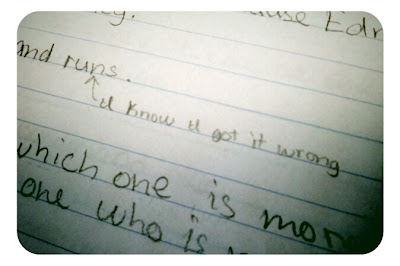 and runs.
u know u got it wrong
which one is mor
one who is